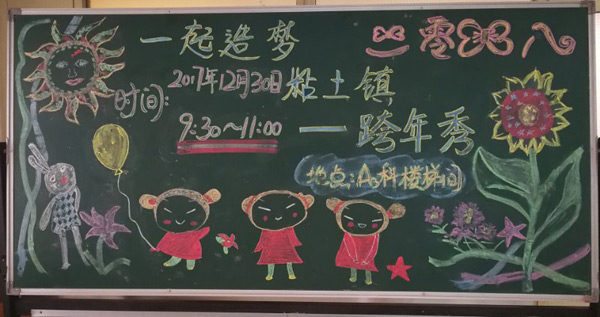 一起造梦
二零一八
时间:2017年12月30日
9:30~11:00
粘土镇
——跨年秀
地点:A。科楼梯间